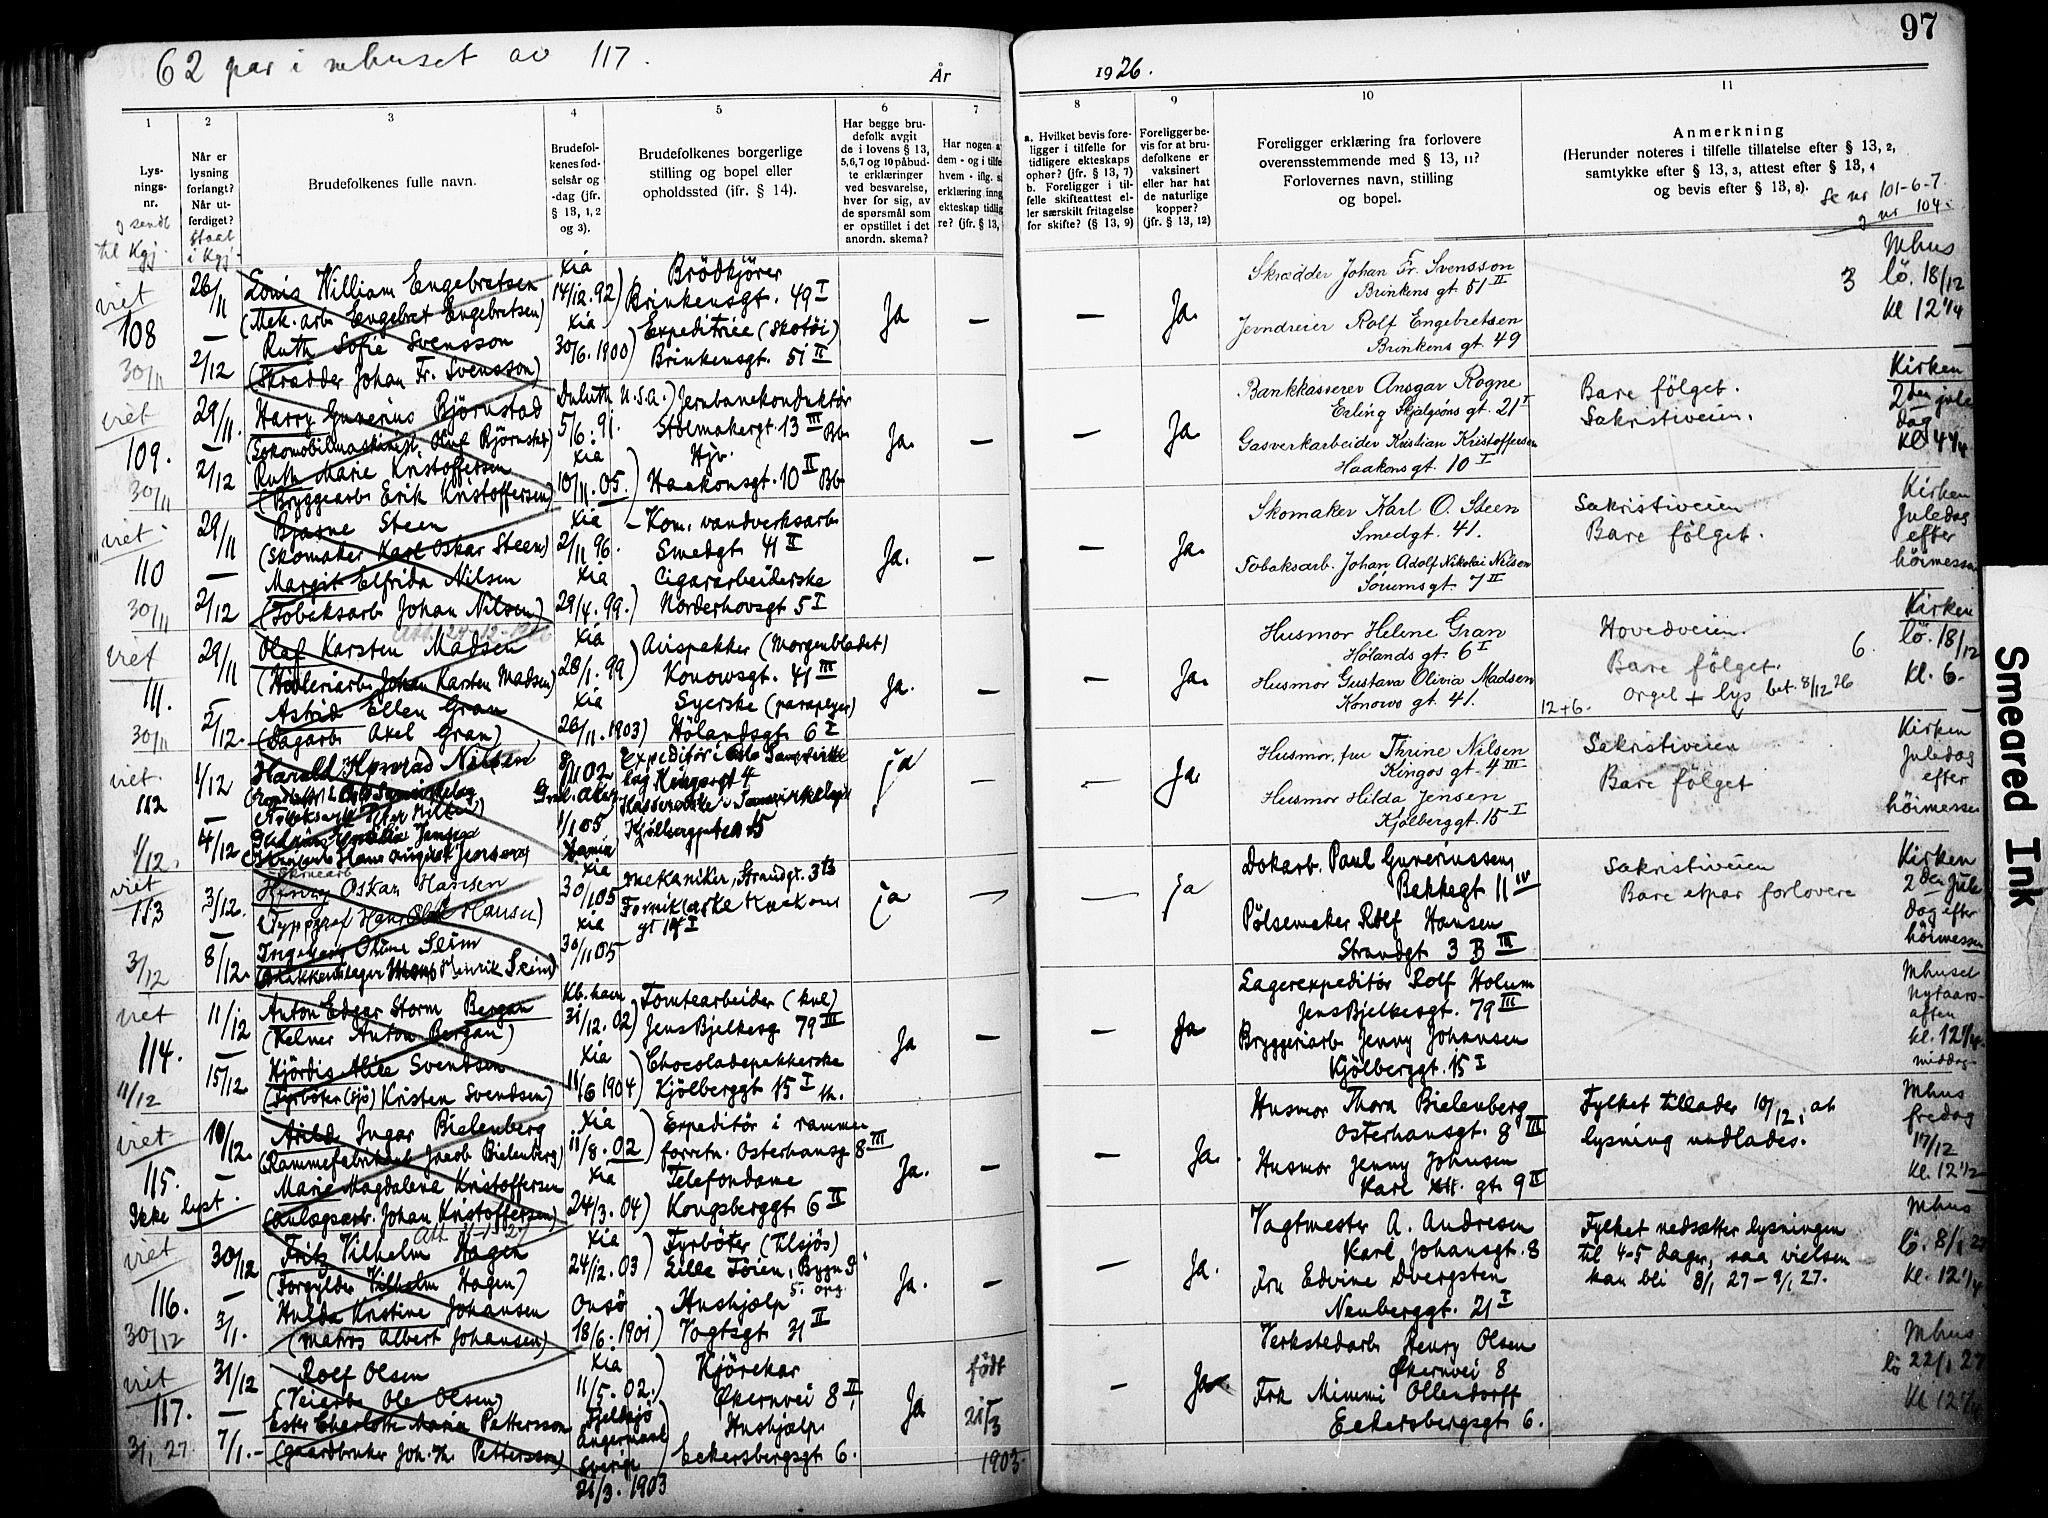 62 par i mhuset av 117.
År
1926.
97
1
2
3
4
5
6
7
8
9
10
11
Lys-
nings-
nr.
Når er
lysning
forlangt?
Når ut-
ferdiget?
Brudefolkenes fulle navn.
Brudefol-
kenes fød-
selsår og
-dag (jfr.
§ 13, 1, 2
og 3).
Brudefolkenes borgerlige
stilling og bopel eller
opholdssted (jfr. § 14).
Har begge bru-
defolk avgit
de i lovens § 13,
5, 6, 7 og 10 påbud-
te erklæringer
ved besvarelse,
hver for sig, av
de spørsmål som
er opstillet i det
anordn. skema?
Har nogen a
dem - og i tilfe
hvem - iflg. s
erklæring inng
ekteskap tidlig
re? (jfr. § 13,
a. Hvilket bevis fore-
ligger i tilfelle for
tidligere ekteskaps
ophør? (jfr. § 13, 7)
b. Foreligger i til-
felle skifteattest el-
ler særskilt fritagelse
for skifte? (§ 13, 9)
Foreligger be-
vis for at bru-
defolkene er
vaksinert
eller har hat
de naturlige
kopper?
(jfr. § 13, 12)
Foreligger erklæring fra forlovere
overensstemmende med § 13, 11?
Forlovernes navn, stilling
og bopel.
Anmerkning
(Herunder noteres i tilfelle tillatelse efter § 13, 2,
samtykke efter § 13, 3, attest efter § 13, 4
og bevis efter § 13, 8).
Se nr 101-6-7.
og nr 104.
viet
108
30/11
26/11
2/12
Louis William Engebretsen
(Mek. arb. Engebret Engebretsen)
Ruth Sofie Svensson
(Skrædder Johan Fr. Svensson)
Xia
14/12.92)
Xia
30/6.1900)
Brödkjörer
Brinkensgt. 49 I
Expeditrice (skotöi)
Brinkensgt. 51 II
Ja
—
—
Ja.
Skrædder Johan Fr. Svensson
Brinkens gt. 51 II
Jerndreier Rolf Engebretsen
Brinkens gt. 49
3
Mhus
lö. 18/12
kl 12 1/4
viet
109.
30/11
29/11.
2/12
Harry Guverius Björnstad
(Lokomobilmaskinist Oluf Björnstad)
Ruth Marie Kristoffersen
(Bryggearb. Erik Kristoffersen)
Duluth U.S.A.)
5/6.91.
Xia
10/11.05.
Jernbanekonduktör
Stolmakergt. 13 III Bb.
Hjv.
Haakonsgt. 10 II Bb
Ja.
—
—
Ja
Bankkasserer Ansgar Rogne
Erling Skjalgsöns gt. 21 I
Gasverkarbeider Kristian Kristoffersen
Haakons gt. 10 I
Bare fölget.
Sakristiveien.
Kirken
2 den jule
dag
kl. 4 1/4
viet
110
30/11
29/11
2/12
Bjarne Steen
(Skomaker Karl Oskar Steen)
Margit Elfrida Nilsen
(Tobaksarb. Johan Nilsen)
Xia
2/11 96.
Xia
29/4.99.)
Kom. vandverksarb.
Smedgt. 41 II
Cigararbeiderske
Norderhovsgt 5 I
Ja.
—
—
Ja.
Skomaker Karl O. Steen
Smedgt. 41.
Tobaksarb. Johan Adolf Nikolai Nilsen
Sörumsgt. 7 II
Sakristiveien
Bare fölget.
Kirken
Juledag
efter
höimessen
viet
111.
30/11
29/11
2/12.
Olaf Karsten Madsen
Johan Karsten Madsen)
Astrid Ellen Gran
(Dagarb. Axel Gran)
Xia
28/1.99)
Xia
26/11.1903)
Avispakker (Morgenbladet)
Konowsgt. 41 III
Syerske (paraplyer)
Hölandsgt. 6 I
Ja.
—
—
Ja.
Husmor Helene Gran
Hölands gt. 6 I
Husmor Gustava Olivia Madsen
Konows gt. 41.
12+6.
Hovedveien.
Bare fölget.
Orgel + lys bet. 8/12 26
6.
Kirken
lö. 18/12
kl. 6.
viet
112
1/12.
1/12
4/12
Harald Konrad Nilsen
8/11 02
1/1 05
ja
—
—
Ja.
Husmor, fru Thrine Nilsen
Kingos gt. 4 III
Husmor Hilda Jensen
Kjölberggt. 15 I
Sakristiveien
Bare fölget
Kirken
Juledag
efter
höimessen
viet
113
3/12
3/12.
8/12.
Henry Oskar Hansen
Hansen)
Henrik Seim)
Xia
30/1 05
Xia
30/11 05
mekaniker, Strandgt. 3 B
gt 14 I
ja
—
—
ja
Dokarb. Paul Guveriussen
Bakkegt 11 IV
Pölsemaker Rolf Hansen
Strandgt 3 B III
Sakristiveien
Bare etpar forlovere
Kirken
2 den Jule
dag efter
höimessen
viet
114.
11/12
11/12
15/12
Anton Edgar Storm Bergan
(Kelner Anton Bergan)
Hjördis Alice Svendsen
(Fyrböter (sjö) Kristen Svendsen)
Kb.havn
31/12.02)
Xia
11/6 1904)
Tomtearbeider (kul)
Jens Bjelkesg. 79 III
Chocoladepakkerske
Kjölberggt 15 I th.
Ja
—
—
Ja
Lagerexpeditör Rolf Holum
Jens Bjelkesgt. 79 III
Bryggeriarb. Jenny Johansen
Kjölberggt. 15 I
Mhuset
Nytaars-
aften
kl. 12 1/4
middag
viet
115.
Ikke lyst.
10/12.
—
Arild Ingar Bielenberg
(Rammefabrikant Jacob Bielenberg)
Marie Magdalena Kristoffersen
(Anlægsarb. Johan Kristoffersen)
Xia
11/8.02)
Xia
24/3.04)
Expeditör i ramme
forretn. Osterhausg. 8 III
Telefondame
Kongsberggt 6 II
Ja.
—
—
Ja.
Husmor Thora Bielenberg
Osterhausgt. 8 III
Husmor Jenny Johnsen
Karl XII. gt. 9 II
Fylket tillader 10/12, at
lysning undlades.
Mhus
fredag
17/12
kl. 12 1/2
viet
116.
30/12
30/12
3/1.
Fritz Vilhelm Hagen
(Forgylder Vilhelm Hagen)
Hulda Kristine Johansen
(matros Albert Johansen)
Xia
24/12.03)
Onsö
18/6.1901)
Fyrböter (tilsjös)
Lille Töien, Bygn 9
5. opg
Hushjælp
Vogtsgt 31 II
Ja.
—
—
Ja.
Vagtmester A. Andresen
Karl Johansgt. 8
Fru Edvine Dvergsten
Neuberggt. 21 I
Fylket nedsætter lysningen
til 4-5 dager, saa vielsen
kan bli 8/1 27 - 9/1 27.
Mhus
lö. 8/1 27
kl. 12 1/4
viet
117.
3/1 27
31/12
7/1.-
Rolf Olsen
(Veiarb. Ole Olsen)
Ester Charlotte Maria Pettersson
(gaardbruker Joh. Pettersson)
Xia
11/5.02.)
Fjellsjö
Sverige
21/3.1903
Kjörekar
Økernvei 8 II
Hushjælp
Eckersbergsgt 6.
Ja
födt
21/3
1903.
—
Ja
Verkstedarb. Henry Olsen
Økernvei 8
Frk Mimmi Ollendorff
Eckersbergsgt 6.
Mhus
lö 22/1 27
kl 12 1/4
Smeared Ink